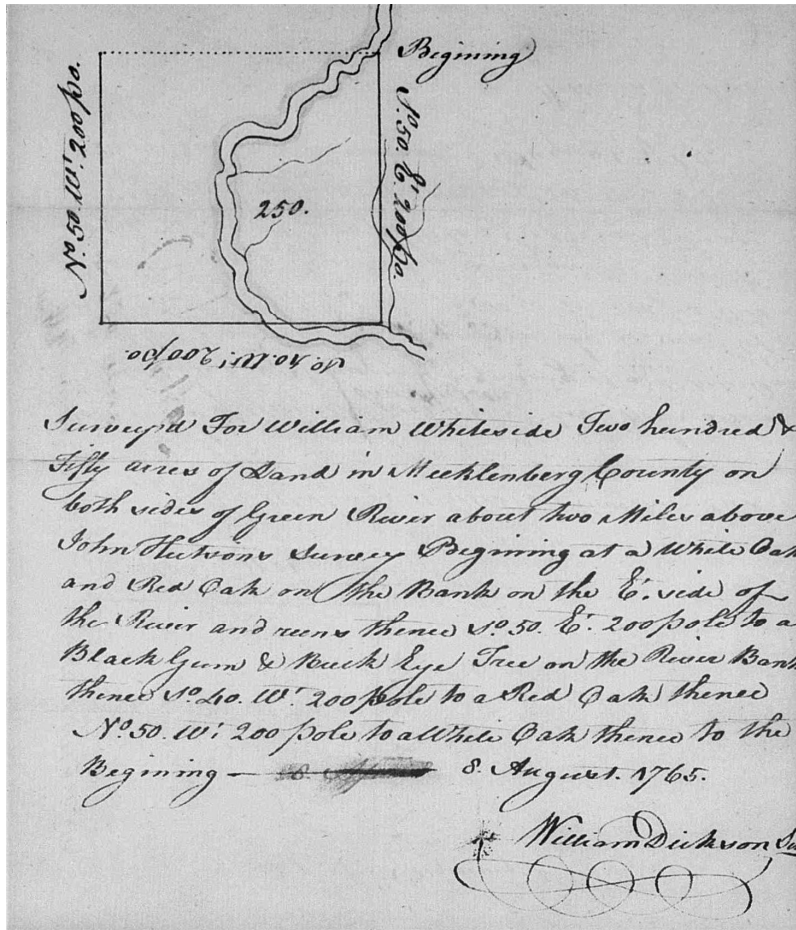 Begining
No. 50. Wt. 200 po.
So. 50. Et. 200 po.
250.
So. 40. Wt. 200 po
Surveyd For William Whiteside Two hundred &
Fifty acres of Land in Mecklenberg County on
both sides of Green River about two Miles above
John Hutsons Survey Begining at a White Oak
and Red Oak on the Bank on the Et. side of
the River and runs thence So. 50. Et. 200 pole to a
Black Gum & Buck Eye Tree on the River Bank
thence So. 40. Wt. 200 pole to a Red Oak thence
No. 50. Wt. 200 pole to a White Oak thence to the
Begining — 8. August. 1765.
William Dickson Su